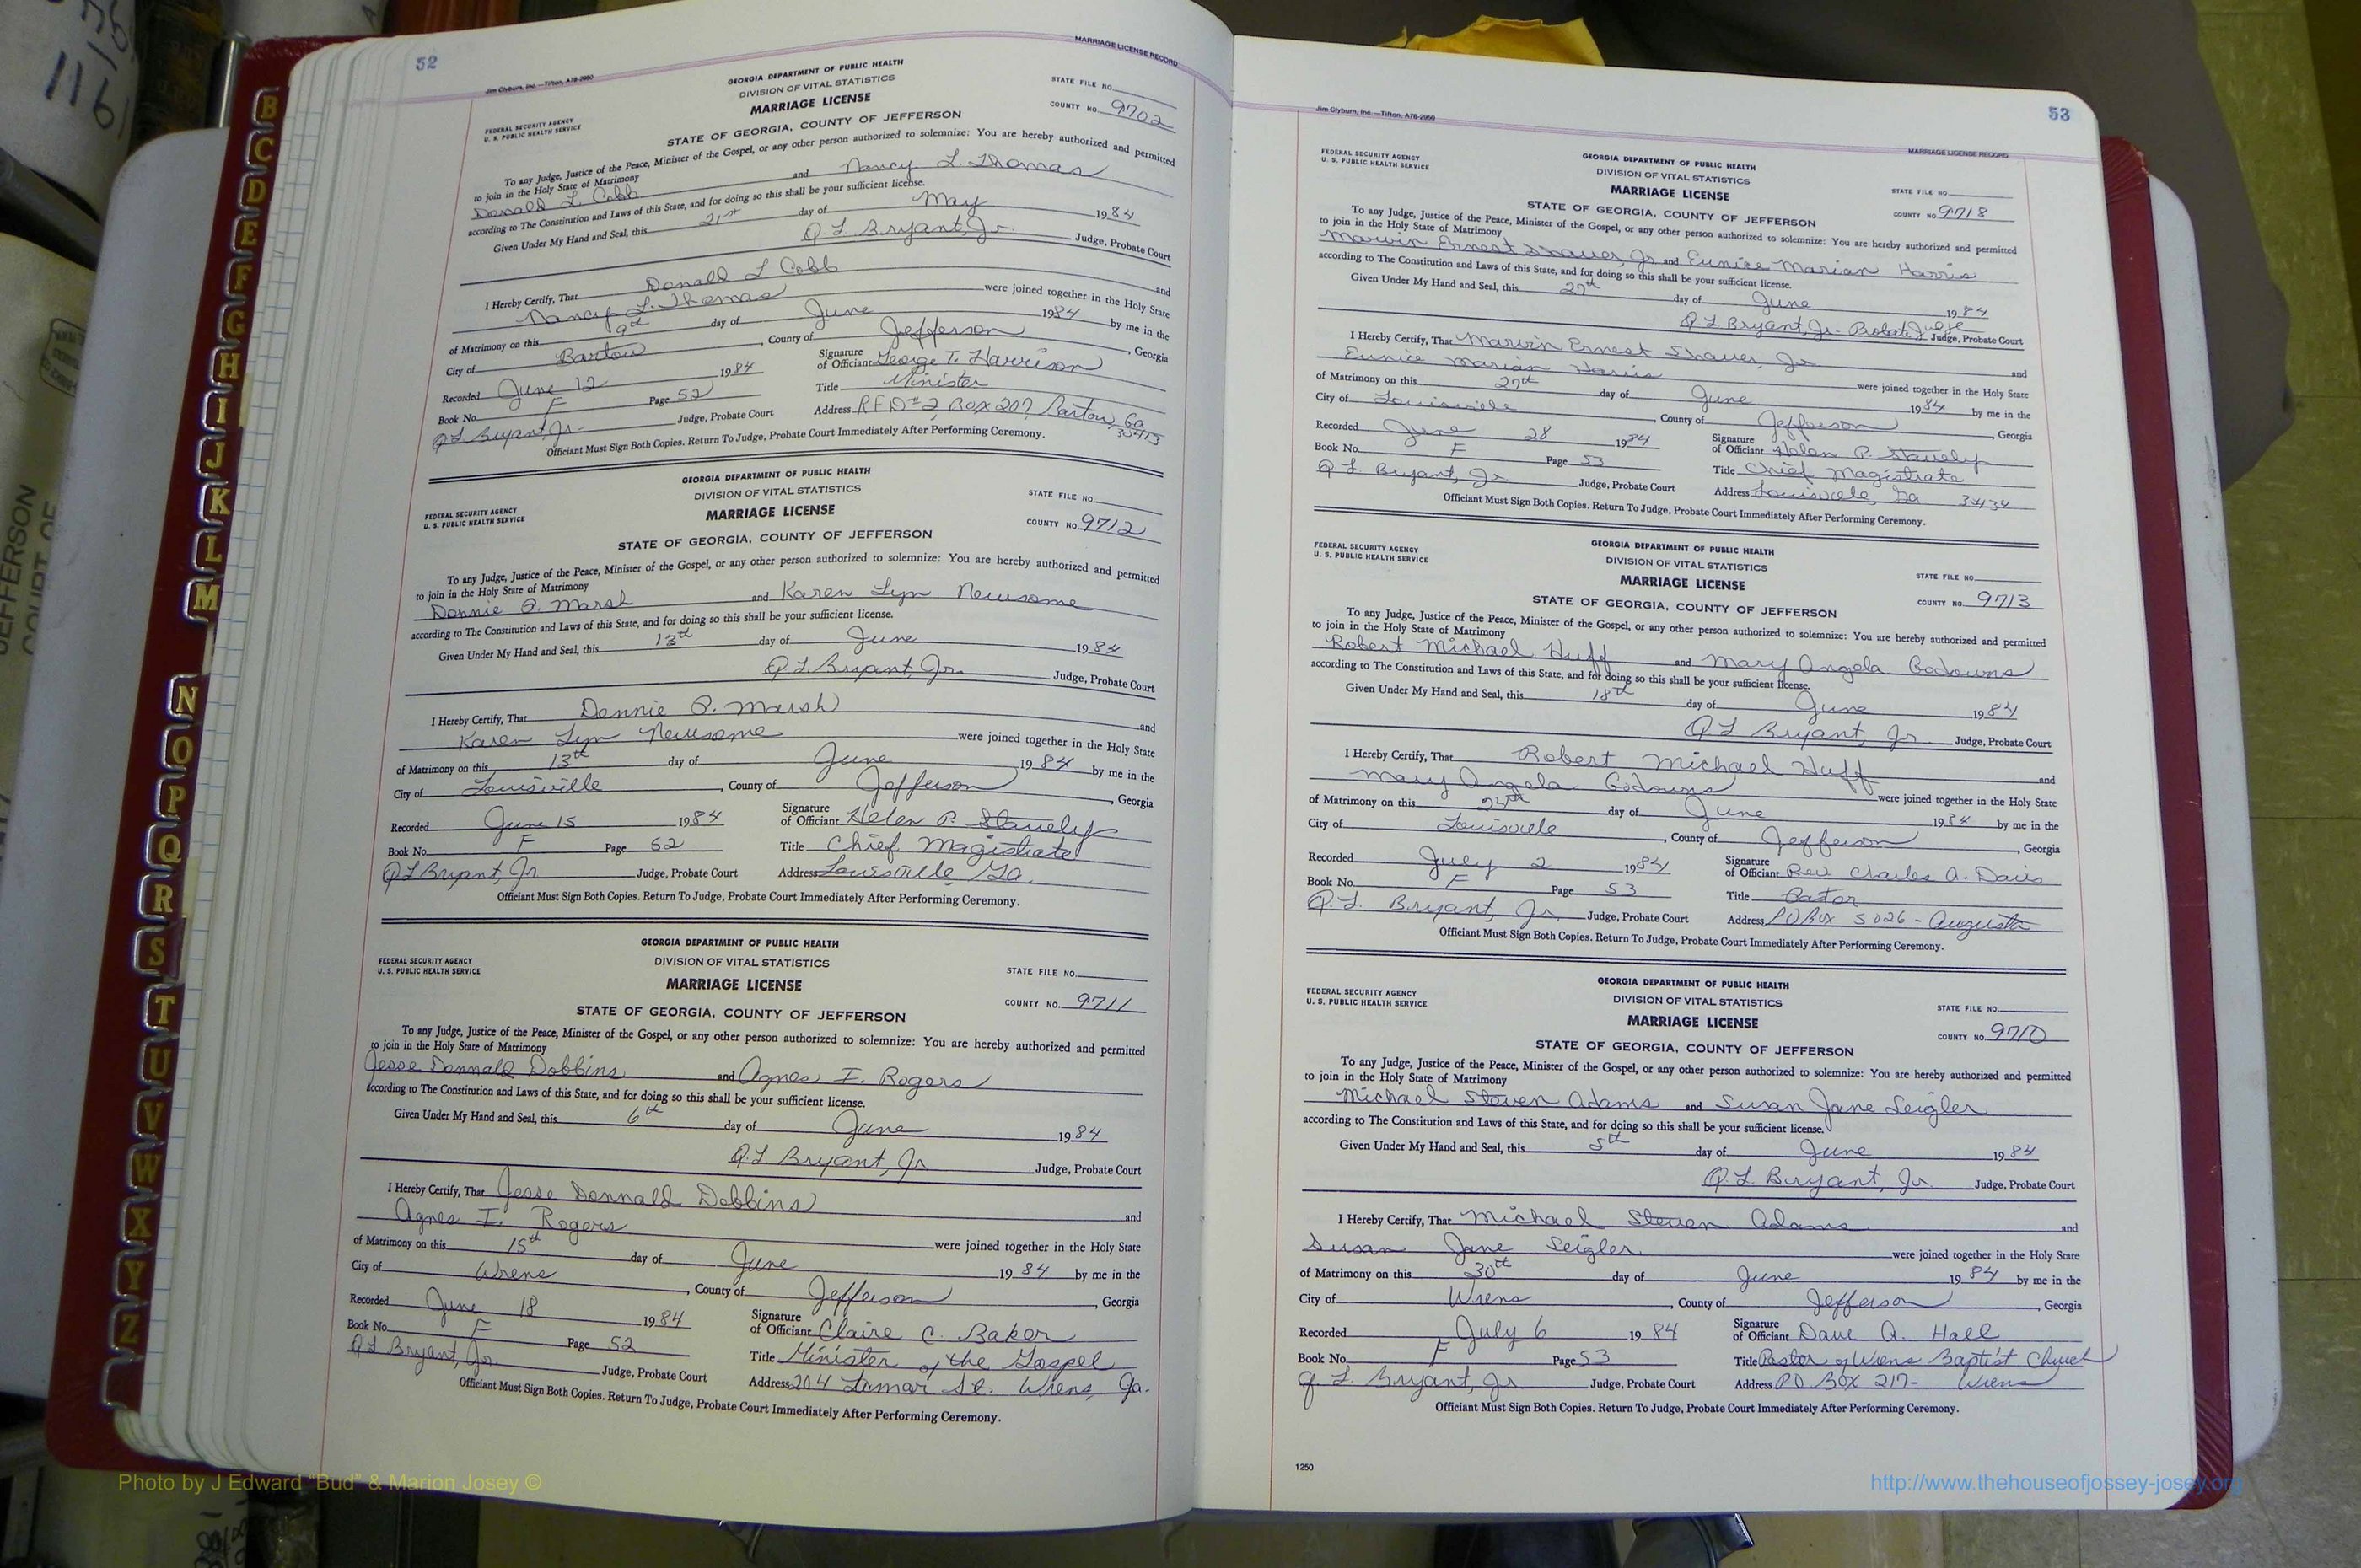 52
Jim Clyburn, Inc.—Tifton, A78-2960
MARRIAGE LICENSE RECORD
GEORGIA DEPARTMENT OF PUBLIC HEALTH
DIVISION OF VITAL STATISTICS
MARRIAGE LICENSE
STATE FILE NO.
COUNTY NO. 9702
FEDERAL SECURITY AGENCY
U. S. PUBLIC HEALTH SERVICE
STATE OF GEORGIA, COUNTY OF JEFFERSON
To any Judge, Justice of the Peace, Minister of the Gospel, or any other person authorized to solemnize: You are hereby authorized and permitted
to join in the Holy State of Matrimony
Donald L. Cobb and Nancy L. Thomas
according to The Constitution and Laws of this State, and for doing so this shall be your sufficient license.
Given Under My Hand and Seal, this 21st day of May 1984
Q L Bryant, Jr. Judge, Probate Court
I Hereby Certify, That Donald L Cobb and
Nancy L. Thomas were joined together in the Holy State
of Matrimony on this 9th day of June 1984 by me in the
City of Bartow, County of Jefferson, Georgia
Recorded June 12 1984 Signature of Officiant George T. Harrison
Book No. F Page 52 Title Minister
Q L Bryant, Jr. Judge, Probate Court Address R F D #2, Box 207 Bartow, Ga 30413
Officiant Must Sign Both Copies. Return To Judge, Probate Court Immediately After Performing Ceremony.
GEORGIA DEPARTMENT OF PUBLIC HEALTH
DIVISION OF VITAL STATISTICS
MARRIAGE LICENSE
STATE FILE NO.
COUNTY NO. 9712
FEDERAL SECURITY AGENCY
U. S. PUBLIC HEALTH SERVICE
STATE OF GEORGIA, COUNTY OF JEFFERSON
To any Judge, Justice of the Peace, Minister of the Gospel, or any other person authorized to solemnize: You are hereby authorized and permitted
to join in the Holy State of Matrimony
Donnie P. Marsh and Karen Lyn Newsome
according to The Constitution and Laws of this State, and for doing so this shall be your sufficient license.
Given Under My Hand and Seal, this 13th day of June 1984
Q L Bryant, Jr. Judge, Probate Court
I Hereby Certify, That Donnie P. Marsh and
Karen Lyn Newsome were joined together in the Holy State
of Matrimony on this 13th day of June 1984 by me in the
City of Louisville, County of Jefferson, Georgia
Recorded June 15 1984 Signature of Officiant Helen P. Stavely
Book No. F Page 52 Title Chief Magistrate
Q L Bryant, Jr Judge, Probate Court Address Louisville, Ga.
Officiant Must Sign Both Copies. Return To Judge, Probate Court Immediately After Performing Ceremony.
GEORGIA DEPARTMENT OF PUBLIC HEALTH
DIVISION OF VITAL STATISTICS
MARRIAGE LICENSE
STATE FILE NO.
COUNTY NO. 9711
FEDERAL SECURITY AGENCY
U. S. PUBLIC HEALTH SERVICE
STATE OF GEORGIA, COUNTY OF JEFFERSON
To any Judge, Justice of the Peace, Minister of the Gospel, or any other person authorized to solemnize: You are hereby authorized and permitted
to join in the Holy State of Matrimony
Jesse Donnald Dobbins and Agnes I. Rogers
according to The Constitution and Laws of this State, and for doing so this shall be your sufficient license.
Given Under My Hand and Seal, this 6th day of June 1984
Q.L Bryant, Jr Judge, Probate Court
I Hereby Certify, That Jesse Donnald Dobbins and
Agnes I. Rogers were joined together in the Holy State
of Matrimony on this 15th day of June 1984 by me in the
City of Wrens, County of Jefferson, Georgia
Recorded June 18 1984 Signature of Officiant Claire C. Baker
Book No. F Page 52 Title Minister of the Gospel
Q L Bryant, Jr. Judge, Probate Court Address 204 Lamar St. Wrens, Ga.
Officiant Must Sign Both Copies. Return To Judge, Probate Court Immediately After Performing Ceremony.
53
Jim Clyburn, Inc.—Tifton, A78-2960
MARRIAGE LICENSE RECORD
FEDERAL SECURITY AGENCY
U. S. PUBLIC HEALTH SERVICE
GEORGIA DEPARTMENT OF PUBLIC HEALTH
DIVISION OF VITAL STATISTICS
MARRIAGE LICENSE
STATE FILE NO.
COUNTY NO. 9718
STATE OF GEORGIA, COUNTY OF JEFFERSON
To any Judge, Justice of the Peace, Minister of the Gospel, or any other person authorized to solemnize: You are hereby authorized and permitted
to join in the Holy State of Matrimony
Marvin Ernest Jr and Eunice Marian Harris
according to The Constitution and Laws of this State, and for doing so this shall be your sufficient license.
Given Under My Hand and Seal, this 27th day of June 1984
Q L Bryant, Jr- Probate Judge Judge, Probate Court
I Hereby Certify, That Marvin Ernest Jr and
Eunice Marian Harris were joined together in the Holy State
of Matrimony on this 27th day of June 1984 by me in the
City of Louisville, County of Jefferson, Georgia
Recorded June 28 1984 Signature of Officiant Helen P. Stavely
Book No. F Page 53 Title Chief Magistrate
Q L. Bryant, Jr Judge, Probate Court Address Louisville, Ga 30434
Officiant Must Sign Both Copies. Return To Judge, Probate Court Immediately After Performing Ceremony.
FEDERAL SECURITY AGENCY
U. S. PUBLIC HEALTH SERVICE
GEORGIA DEPARTMENT OF PUBLIC HEALTH
DIVISION OF VITAL STATISTICS
MARRIAGE LICENSE
STATE FILE NO.
COUNTY NO. 9713
STATE OF GEORGIA, COUNTY OF JEFFERSON
To any Judge, Justice of the Peace, Minister of the Gospel, or any other person authorized to solemnize: You are hereby authorized and permitted
to join in the Holy State of Matrimony
Robert Michael Huff and Mary Angela Godowns
according to The Constitution and Laws of this State, and for doing so this shall be your sufficient license.
Given Under My Hand and Seal, this 18th day of June 1984
Q L Bryant, Jr. Judge, Probate Court
I Hereby Certify, That Robert Michael Huff and
Mary Angela Godowns were joined together in the Holy State
of Matrimony on this 24th day of June 1984 by me in the
City of Louisville, County of Jefferson, Georgia
Recorded July 2 1984 Signature of Officiant Rev Charles A. Davis
Book No. F Page 53 Title Pastor
Q.L. Bryant, Jr. Judge, Probate Court Address P O Box 5026 - Augusta
Officiant Must Sign Both Copies. Return To Judge, Probate Court Immediately After Performing Ceremony.
FEDERAL SECURITY AGENCY
U. S. PUBLIC HEALTH SERVICE
GEORGIA DEPARTMENT OF PUBLIC HEALTH
DIVISION OF VITAL STATISTICS
MARRIAGE LICENSE
STATE FILE NO.
COUNTY NO. 9710
STATE OF GEORGIA, COUNTY OF JEFFERSON
To any Judge, Justice of the Peace, Minister of the Gospel, or any other person authorized to solemnize: You are hereby authorized and permitted
to join in the Holy State of Matrimony
Michael Steven Adams and Susan Jane Seigler
according to The Constitution and Laws of this State, and for doing so this shall be your sufficient license.
Given Under My Hand and Seal, this 5th day of June 1984
Q.L. Bryant, Jr. Judge, Probate Court
I Hereby Certify, That Michael Steven Adams and
Susan Jane Seigler were joined together in the Holy State
of Matrimony on this 30th day of June 1984 by me in the
City of Wrens, County of Jefferson, Georgia
Recorded July 6 1984 Signature of Officiant Dave A. Hall
Book No. F Page 53 Title Pastor of Wrens Baptist Church
Q L Bryant, Jr Judge, Probate Court Address P O Box 217- Wrens
Officiant Must Sign Both Copies. Return To Judge, Probate Court Immediately After Performing Ceremony.
1250
B
C
D
E
F
G
H
I
J
K
L
M
N
O
P
Q
R
S
T
U
V
W
X
Y
Z
JEFFERSON
COURT OF
Photo by J Edward "Bud" & Marion Josey ©
http://www.thehouseofjossey-josey.org